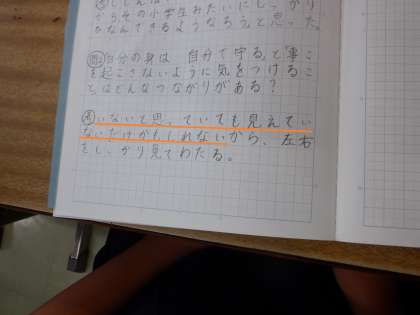 からその小学生みたいにしっかり
ひなんできるようなろうと思った。
自分の身は 自分で守る」と「事こ
を起こさないように気をつけるこ
と」はどんなつながりがある?
いないと思っていても見えてい
ないだけかもしれないから、左右
をしっかり見てわたる。